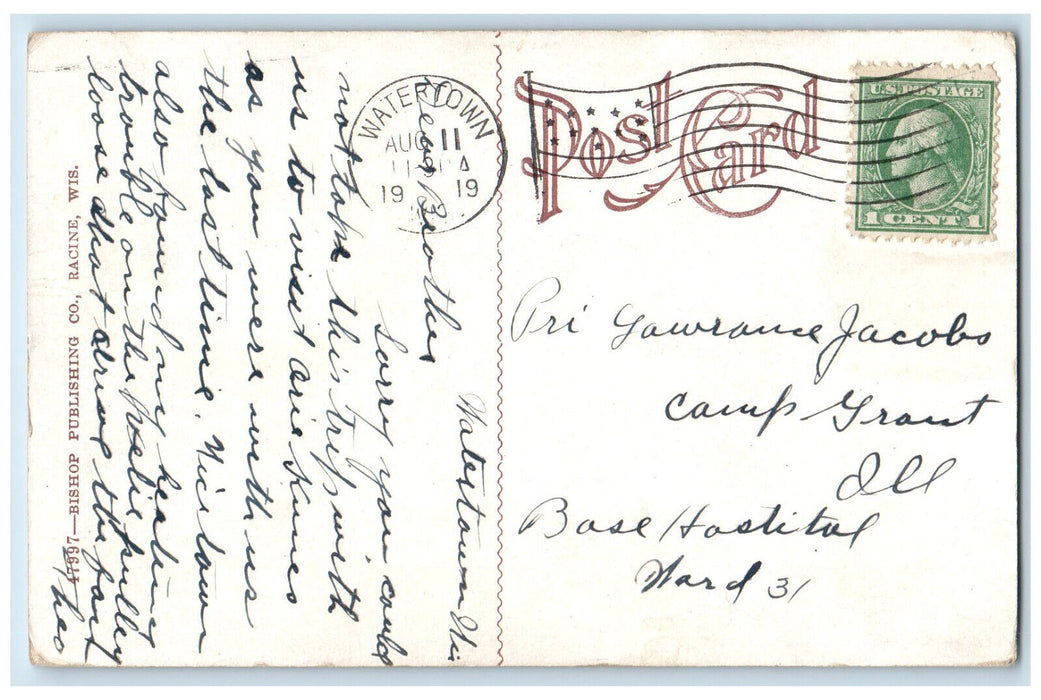 Watertown Wis
Dear Brother
Sorry you could
not take this trip with
us to visit
as you were with us
the last time. Nice town
also found my heating
trouble on the pulley
loose that drives the fant
Theo
WATERTOWN
AUG 11
11 A
19 19
WIS.
Post Card
U.S. POSTAGE
1 CENT 1
Pri Lawrance Jacobs
Camp Grant
Ill
Base Hostital
Ward 31
47997—BISHOP PUBLISHING CO., RACINE, WIS.